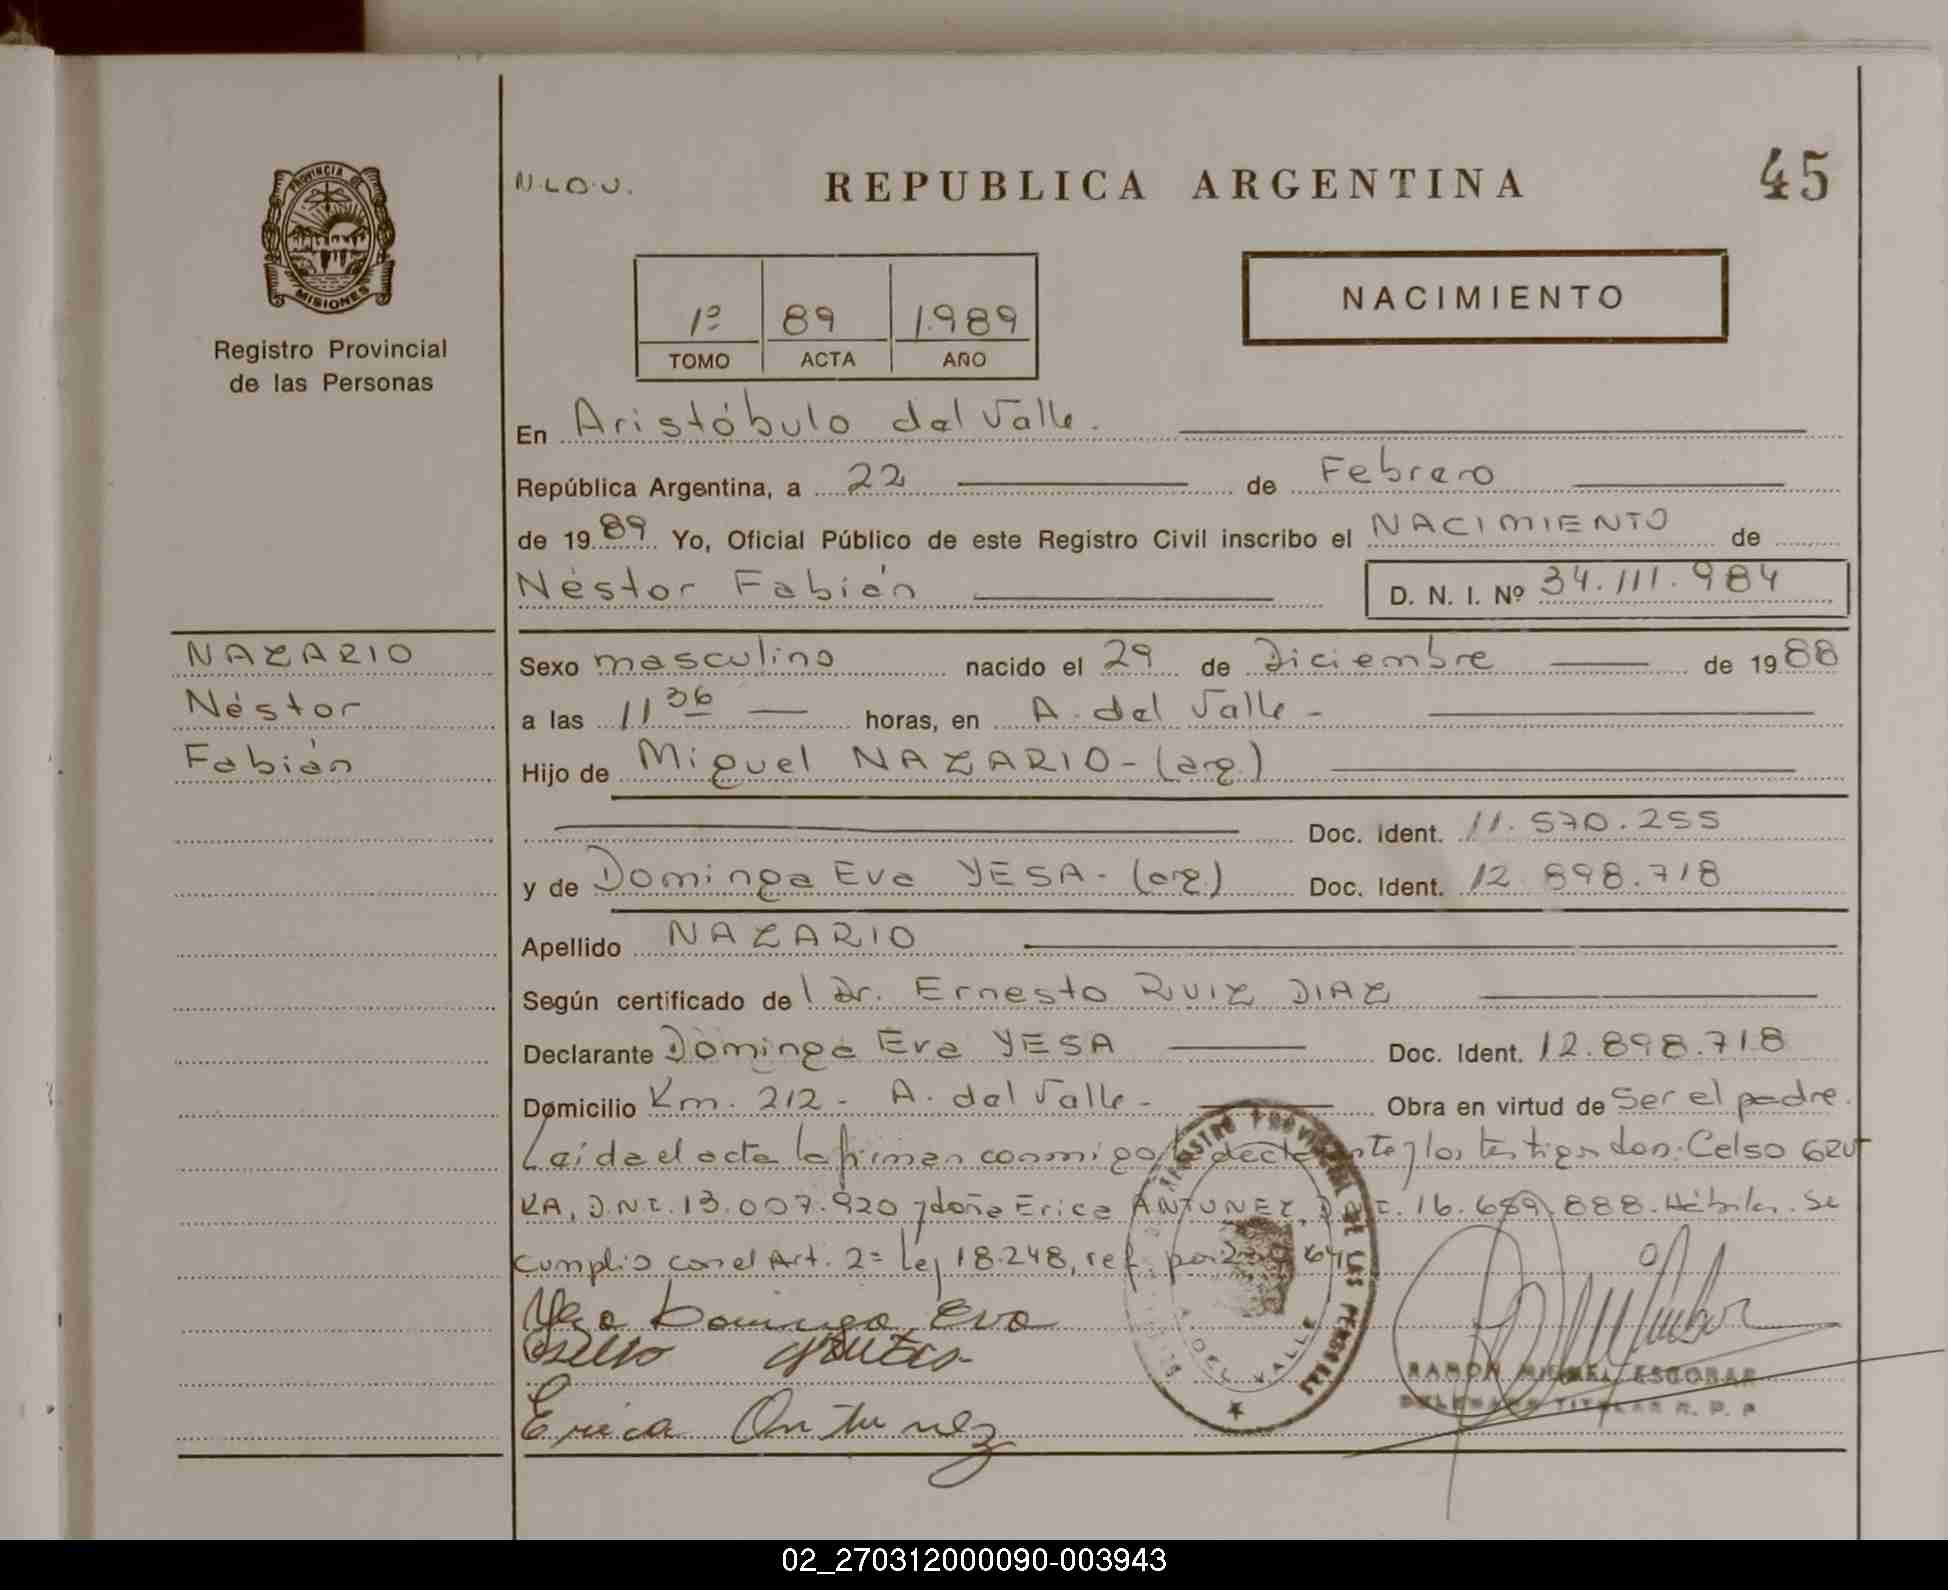 PROVINCIA DE
MISIONES
Registro Provincial
de las Personas
N.L.O.U.
REPUBLICA ARGENTINA
45
1º 89 1.989
TOMO ACTA AÑO
NACIMIENTO
En Aristóbulo del Valle.
República Argentina, a 22 de Febrero
de 1989 Yo, Oficial Público de este Registro Civil inscribo el NACIMIENTO de
Néstor Fabián D. N. I. Nº 34.111.984
NAZARIO
Néstor
Fabián
Sexo masculino nacido el 29 de Diciembre de 1988
a las 11 36 horas, en A. del Valle -
Hijo de Miguel NAZARIO - (arg.)
Doc. Ident. 11.570.255
y de Dominga Eva YESA - (arg.) Doc. Ident. 12.898.718
Apellido NAZARIO
Según certificado de l Dr. Ernesto RUIZ DIAZ
Declarante Dominga Eva YESA Doc. Ident. 12.898.718
Domicilio Km. 212 - A. del Valle - Obra en virtud de Ser el padre.
Leída el acta la firman conmigo y los testigos don: Celso GRU
KA, D.N.I. 13.007.920 y doña Erica ANTUNEZ, 16.689.888. Hábiles. Se
cumplió con el Art. 2º Ley 18.248, ref. por
Yesa Dominga Eva
Erica Antunez
A. DEL VALLE
RAMON MIGUEL ESCOBAR
DELEGADO TITULAR R. P. P
02_270312000090-003943